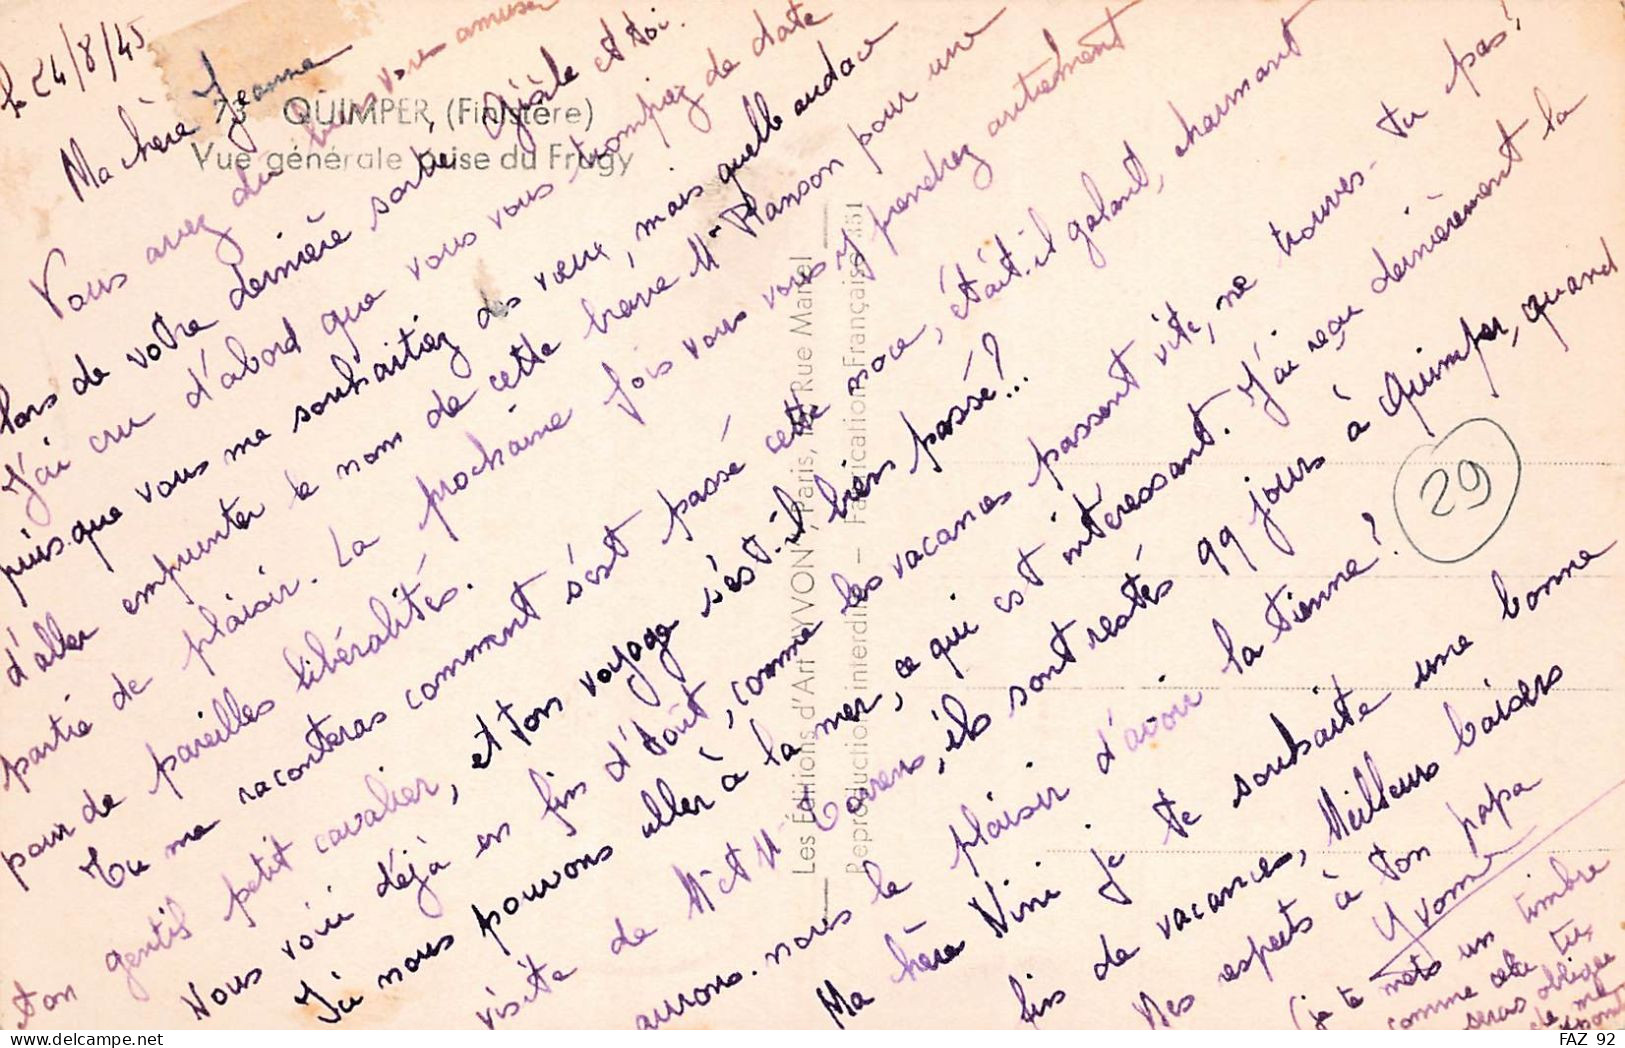 le 24/8/45
Ma chère Jeanne
73 QUIMPER (Finistère)
Vue générale prise du Frugy
Vous avez dû bien vous amuser
lors de votre dernière sortie, Gisèle et toi.
J'ai cru d'abord que vous vous trompiez de date
puis que vous me souhaitiez des vœux, mais quelle audace
d'aller emprunter le nom de cette brave Mme Planson pour une
partie de plaisir. La prochaine fois vous vous y prendrez autrement
pour de pareilles libéralités.
Tu me raconteras comment s'est passé cette noce, était-il galant, charmant
ton gentil petit cavalier, et ton voyage s'est-il bien passé?...
Nous voici déjà en fin d'août, comme les vacances passent vite, ne trouves-tu pas!
Ici nous pouvons aller à la mer, ce qui est intéressant. J'ai reçu dernièrement la
visite de M et Mme, ils sont restés 99 jours à Quimper, quand
aurons-nous le plaisir d'avoir la tienne?
Ma chère Nini je te souhaite une bonne
fin de vacances, Meilleurs baisers
Mes respects à ton papa
Yvonne
(je te mets un timbre
comme cela tu
seras obligée
de me
29
Les Éditions d'Art "YVON", Paris, Rue Martel
Reproduction interdite – Fabrication Française